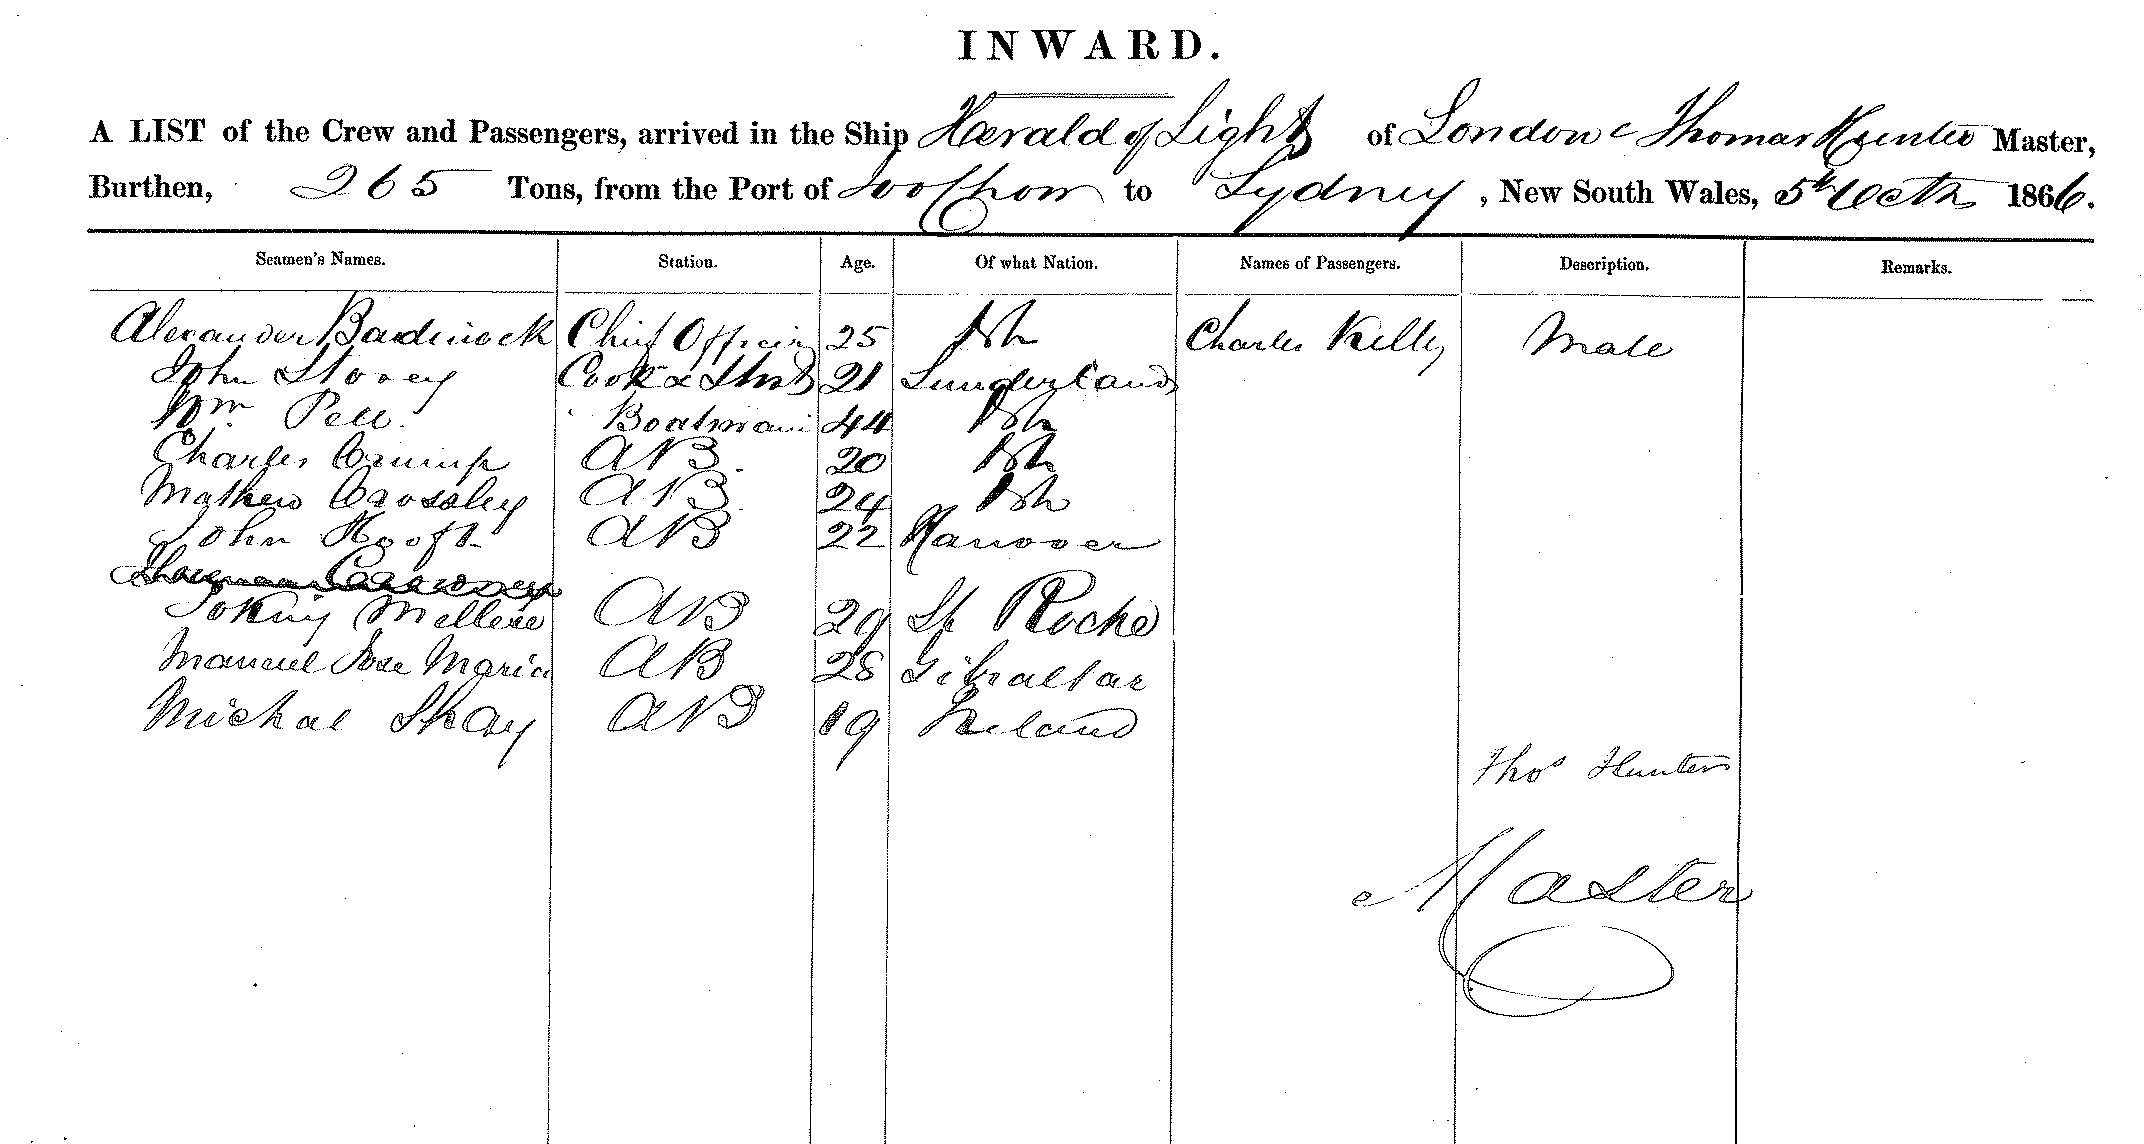 INWARD.
A LIST of the Crew and Passengers, arrived in the Ship Herald of Light of London Thomas Hunter Master,
Burthen, 265 Tons, from the Port of Foo Chow to Sydney, New South Wales, 5th Octr 1866.
Seamen's Names. Station. Age. Of what Nation. Names of Passengers. Description. Remarks.
Alexander Chief Officer 25 Charles Kelly Male
John Storey Cook & Stwd 21 Sunderland
Wm Pell Boatman 44
Charles Crump AB. 20
Mathew Crossley AB. 24
John Hooft AB 22 Hanover
AB 29 St Roche
Manuel Jose Maria AB 28 Gibraltar
Michal Shay AB 19 Ireland
Thos Hunter
Master